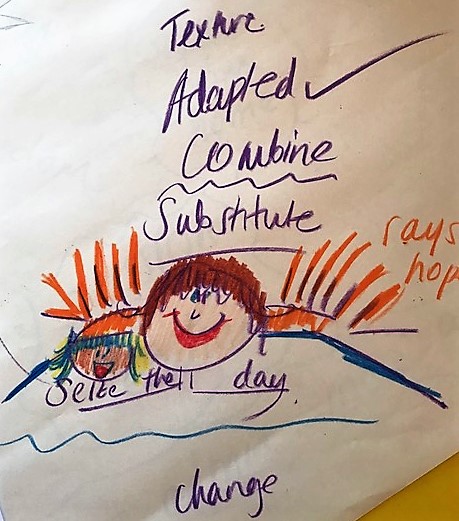 Texture
Adapted
Combine
Substitute
rays
hop
Seize the day
change